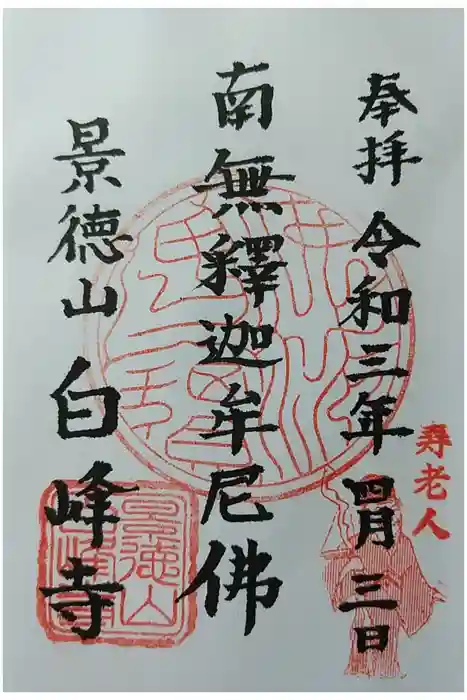 奉拝 令和三年四月三日
寿老人
南無釋迦牟尼佛
景徳山 白峰寺
景徳山
白峰寺